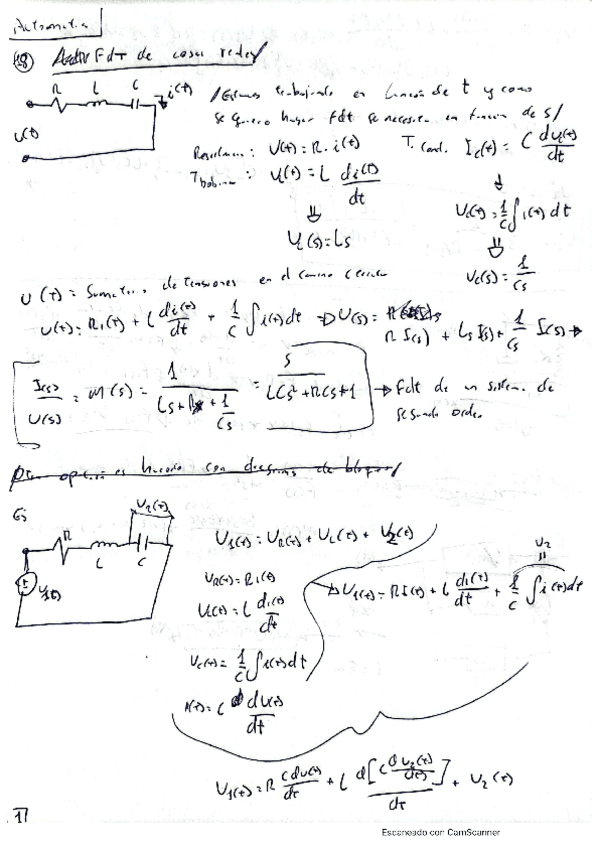 Automatica
18) FdT de cosas redes
R L C i(t)
U(t)
/Estamos trabajando en función de t y como
se quiere hacer Fdt se necesita en función de s/
Resistencia: U(t) = R. i(t)
T. cond. Ic(t) = C duc(t)/dt
T bobina: UL(t) = L di(t)/dt
⇓
Uc(t) = 1/C ∫ i(t) dt
UL(s) = Ls
⇓
Uc(s) = 1/Cs
U(t) = Sumatorio de tensiones en el camino cerrado
U(t) = Ri(t) + L di(t)/dt + 1/C ∫ i(t) dt ⇒ U(s) = R I(s) + Ls I(s) + 1/Cs I(s) →
I(s)/U(s) = M(s) = 1/(Ls + R + 1/Cs) = s/(LCs² + RCs + 1) → Fdt de un sistema de
segundo orden
opción es hacerlo con diagrama de bloques/
Ej
U2(t)
R L C
U1(t)
U1(t) = UR(t) + UL(t) + U2(t)
UR(t) = Ri(t)
→ U1(t) = R I(t) + L di(t)/dt + 1/C ∫ i(t) dt
U2
UL(t) = L di(t)/dt
Uc(t) = 1/C ∫ i(t) dt
i(t) = C du(t)/dt
U1(t) = R C du(t)/dt + L d[C du2(t)/dt]/dt + U2(t)
17
Escaneado con CamScanner